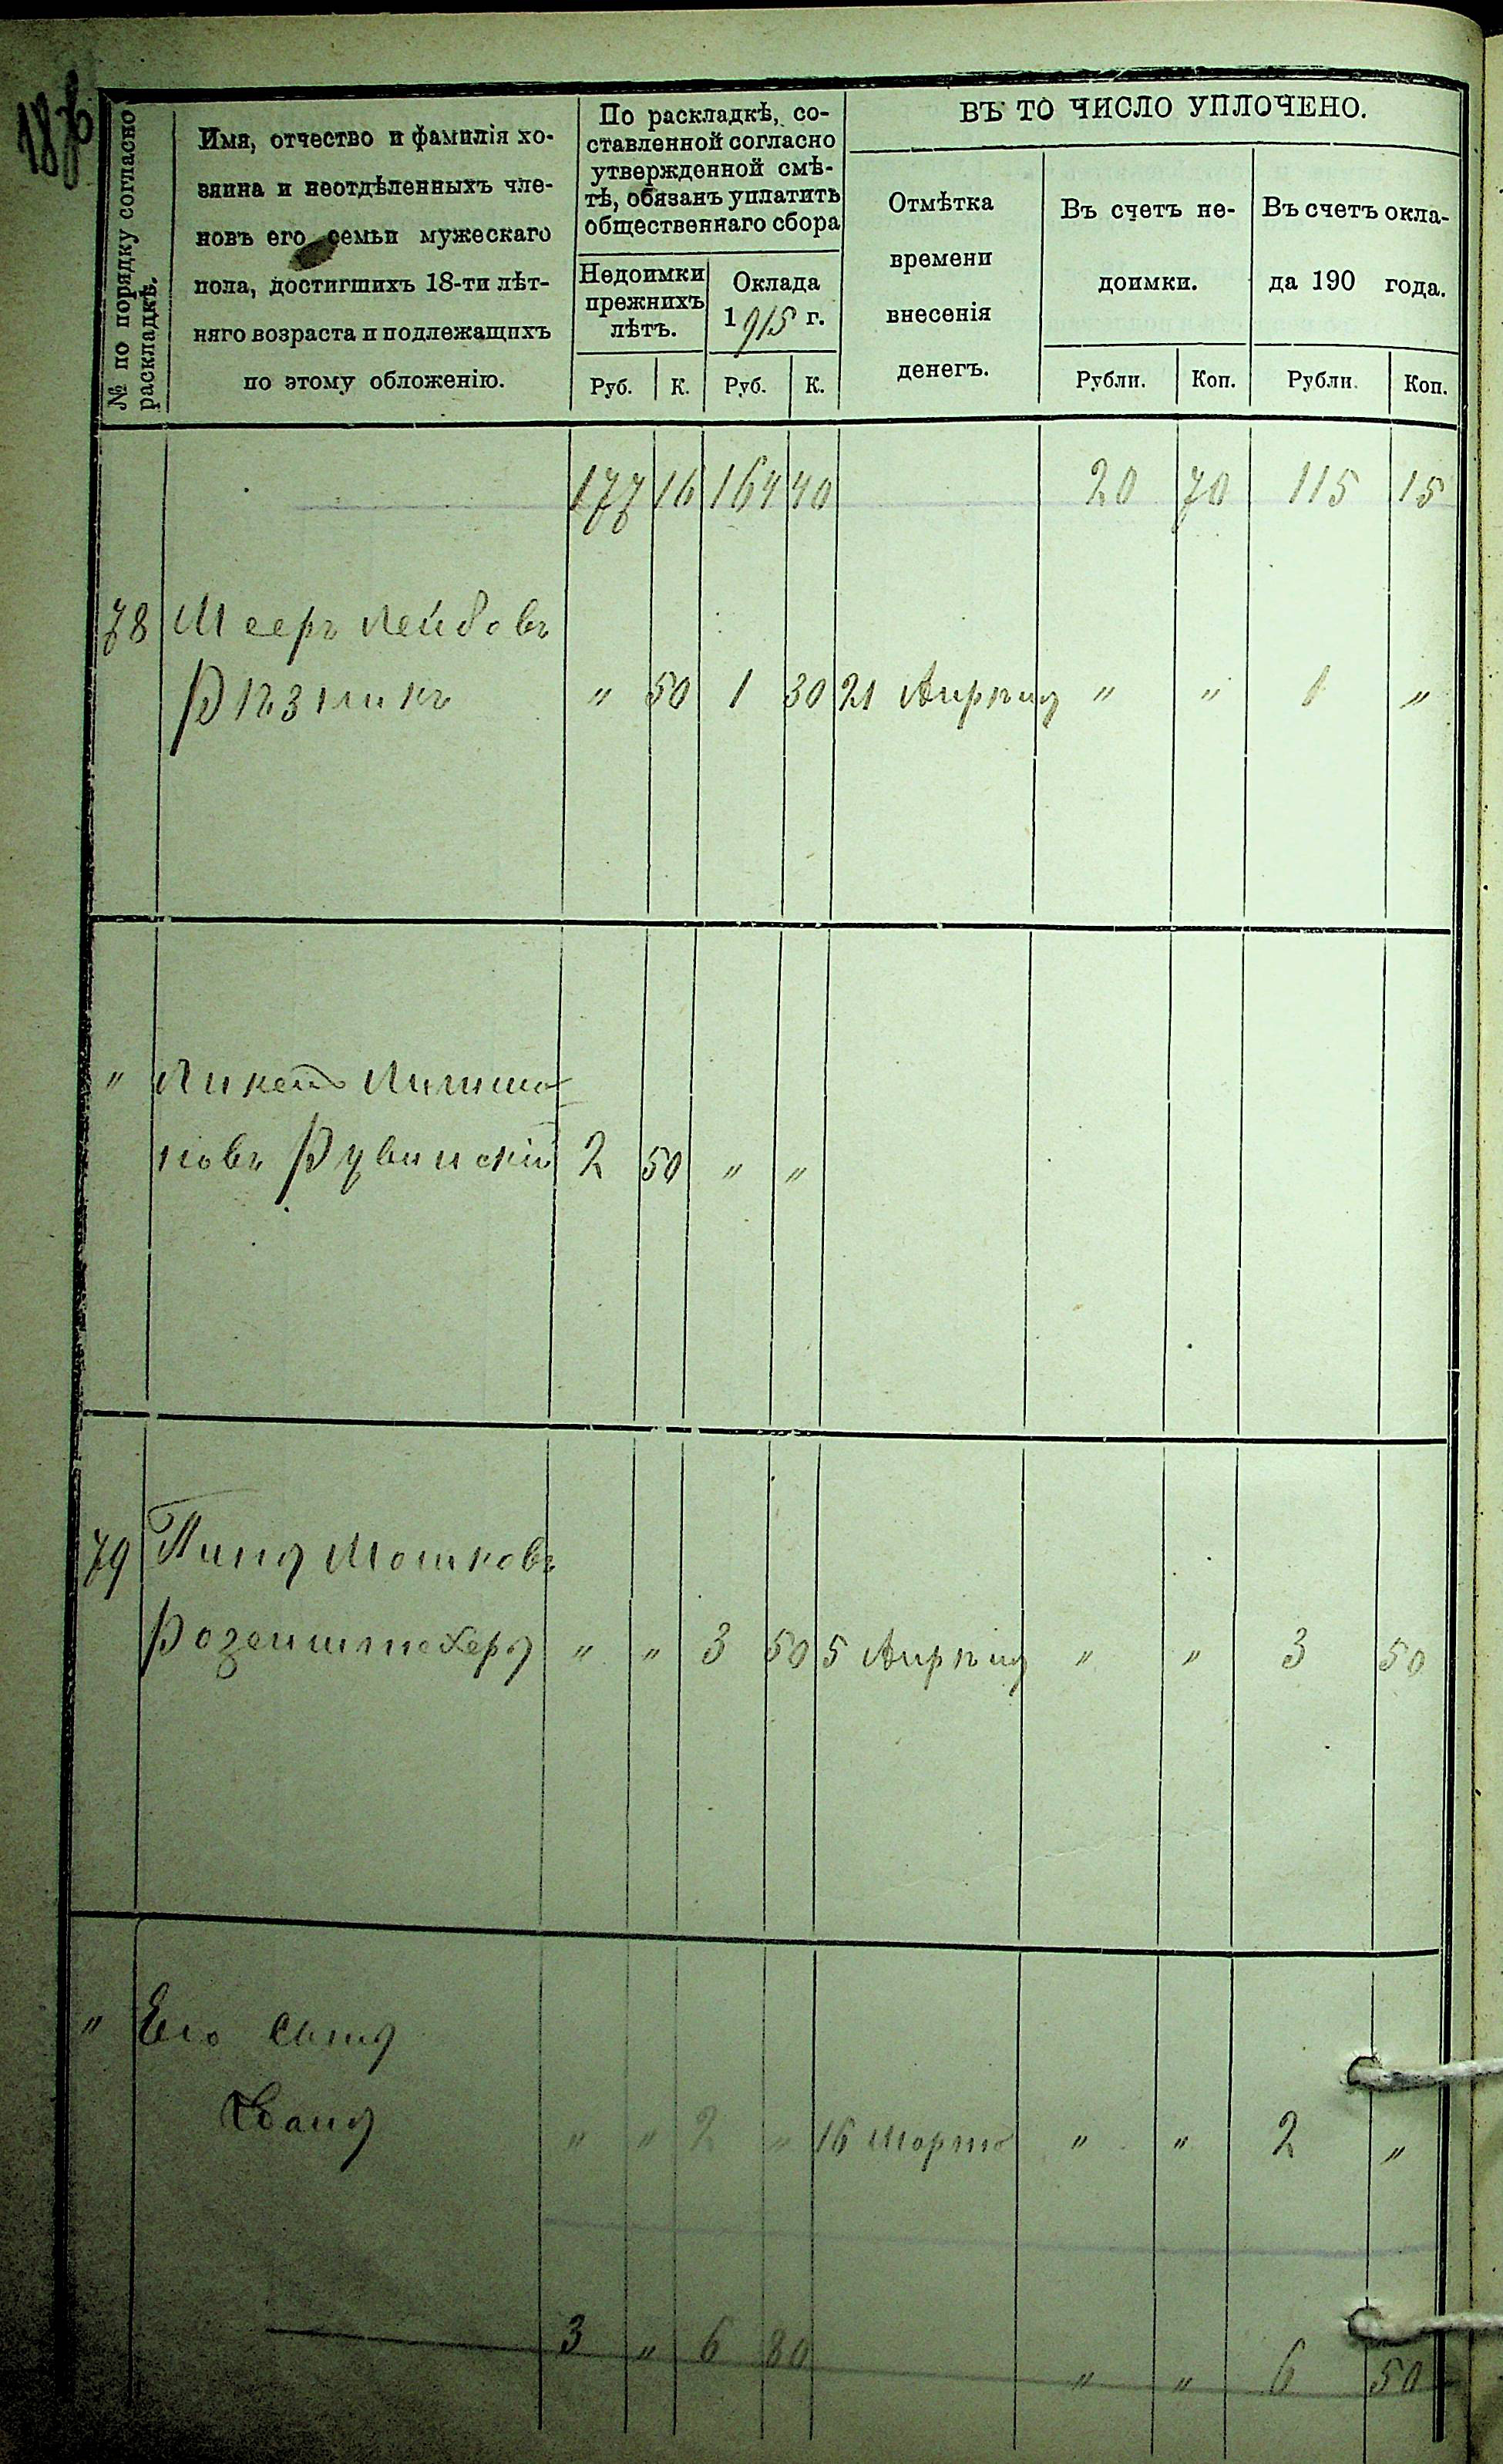 № по порядку согласно раскладкѣ.
Имя, отчество и фамилія хо-
зяина и неотдѣленныхъ чле-
новъ его семьи мужескаго
пола, достигшихъ 18-ти лѣт-
няго возраста и подлежащихъ
по этому обложенію.
По раскладкѣ, со-
ставленной согласно
утвержденной смѣ-
тѣ, обязанъ уплатить
общественнаго сбора
Недоимки
прежнихъ
лѣтъ.
Оклада
1915 г.
Руб. К. Руб. К.
ВЪ ТО ЧИСЛО УПЛОЧЕНО.
Отмѣтка
времени
внесенія
денегъ.
Въ счетъ не-
доимки.
Въ счетъ окла-
да 190 года.
Рубли. Коп. Рубли. Коп.
177 16 164 40 20 70 115 15
78 Мееръ Лейбовъ
Рѣзникъ " 50 1 30 21 Апрѣля " " 1 "
"
новъ Рувинскій 2 50 " "
79 Пиня Мошковъ
Розенштехеръ " " 3 50 5 Апрѣля " " 3 50
" Его сынъ
" " 2 " 16 Марта " " 2 "
3 " 6 80 " " 6 50